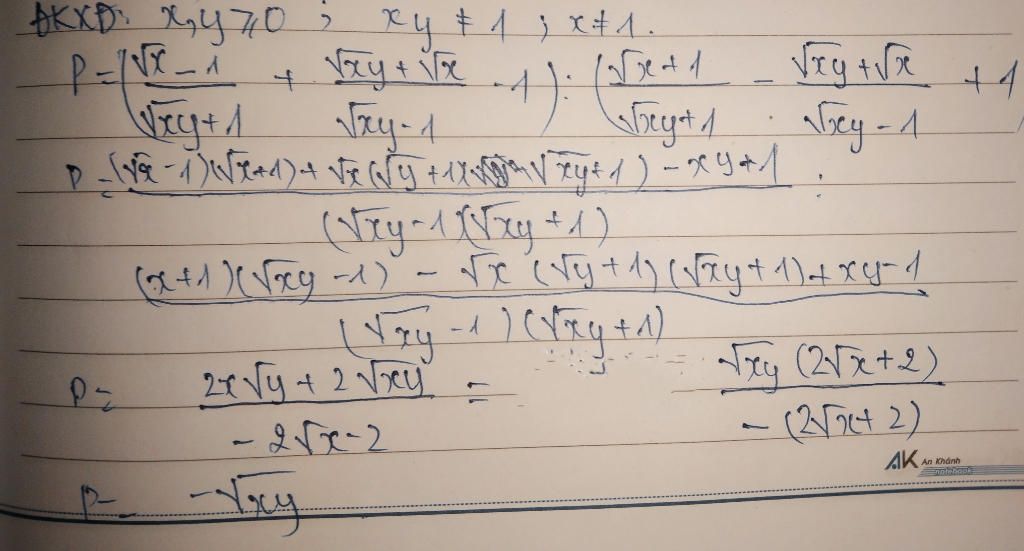 ĐKXĐ: x,y ≥ 0 ; xy ≠ 1 ; x ≠ 1.
P = ( (√x - 1)/(√xy + 1) + (√xy + √x)/(√xy - 1) - 1 ) : ( (√x + 1)/(√xy + 1) - (√xy + √x)/(√xy - 1) + 1
P = ((√x - 1)(√x + 1) + √x(√y + 1)(√xy + 1) - xy + 1)/((√xy - 1)(√xy + 1)) :
((x + 1)(√xy - 1) - √x (√y + 1)(√xy + 1) + xy - 1)/((√xy - 1)(√xy + 1))
P = (2x√y + 2√xy)/(-2√x - 2) = (√xy (2√x + 2))/(-(2√x + 2))
AK An Khánh
notebook
P = -√xy